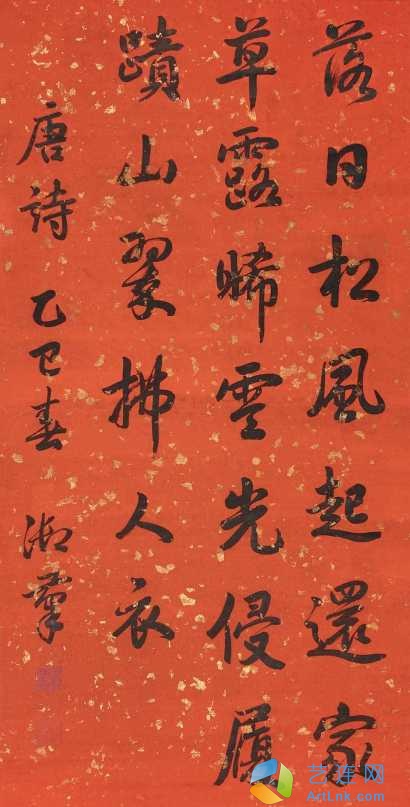 落日松風起還家
草露晞雲光侵履
蹟山翠拂人衣
唐詩 乙巳春
艺连网
ArtLink.com